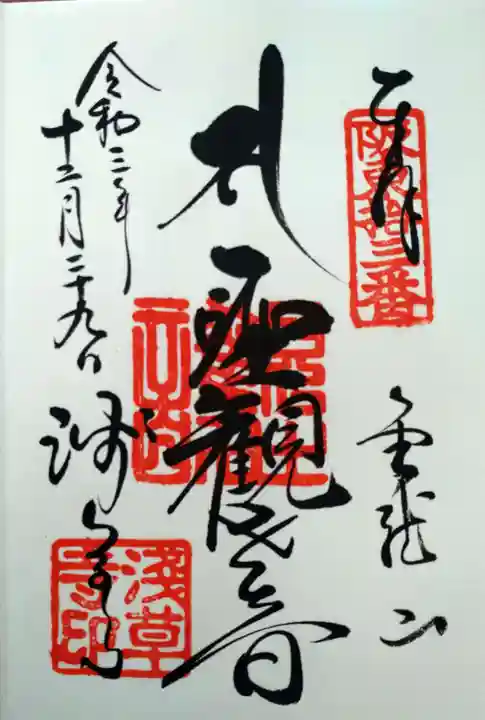 奉拝
坂東拾三番
金龍山
聖観世音
令和三年
十二月二十九日
浅草寺
浅草寺印